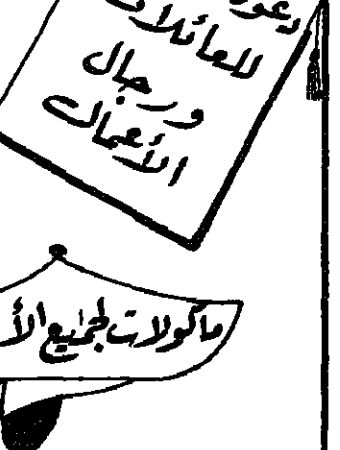 للعائلات
ورجال
الأعمال
ماكولات لجميع